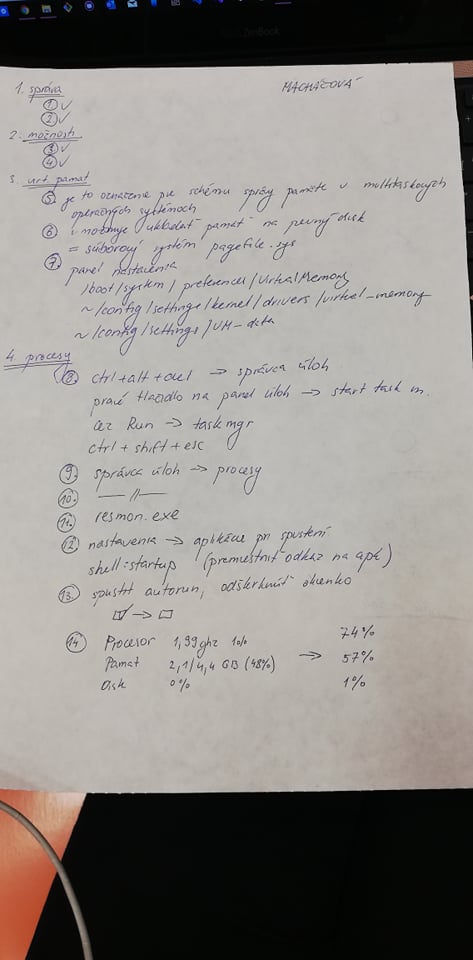 MACHÁČOVÁ
1. správa
① ✓
② ✓
2. možnosti
③ ✓
④ ✓
3. virt. pamäť
⑤ je to označenie pre schému správy pamäte v multitaskových
operačných systémoch
⑥ umožnuje ukladať pamäť na pevný disk
= súborový systém pagefile.sys
⑦ panel nastavenia
/boot/system/preferences/VirtualMemory
~/config/settings/kernel/drivers/virtual_memory
~/config/settings/VM_data
4. procesy
⑧. ctrl+alt+del → správca úloh
pravé tlačidlo na panel úloh → start task m.
cez Run → taskmgr
ctrl + shift + esc
⑨. správca úloh → procesy
⑩. —— // ——
⑪. resmon.exe
⑫ nastavenia → aplikácie pri spustení
shell:startup (premiestniť odkaz na apk)
⑬. spustiť autorun, odškrknúť okienko
☑ → ☐
⑭ Procesor 1,99ghz 10% 74%
Pamäť 2,1/4,4 GB (48%) → 57%
Disk 0% 1%